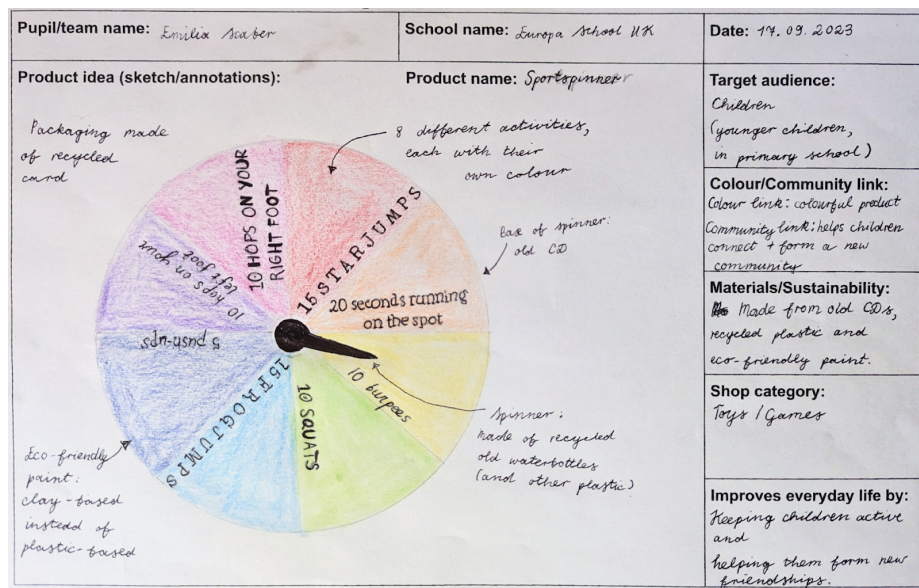 Pupil/team name: Emilia Scaber
School name: Europa School UK
Date: 17.09.2023
Product idea (sketch/annotations):
Product name: Sportspinner
Packaging made
of recycled
card
8 different activities,
each with their
own colour
Base of spinner:
old CD
10 HOPS ON YOUR
RIGHT FOOT
15 STARJUMPS
20 seconds running
on the spot
10 burpees
10 SQUATS
15 FROGJUMPS
5 push-ups
10 hops on your
left foot
Spinner:
Made of recycled
old waterbottles
(and other plastic)
Eco-friendly
paint:
clay-based
instead of
plastic-based
Target audience:
Children
(younger children,
in primary school)
Colour/Community link:
Colour link: colourful product
Community link: helps children
connect + form a new
community
Materials/Sustainability:
Made from old CDs,
recycled plastic and
eco-friendly paint.
Shop category:
Toys / Games
Improves everyday life by:
Keeping children active
and
helping them form new
friendships.